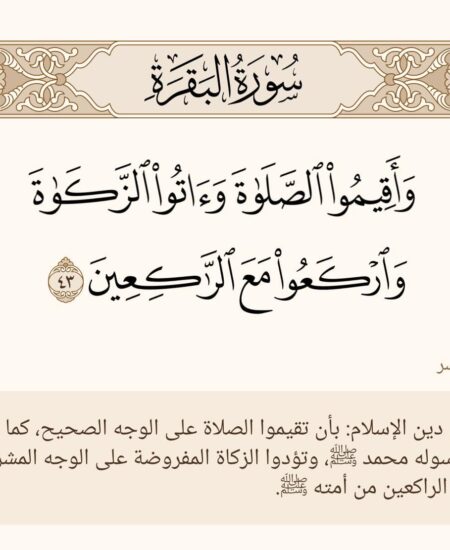 سُورَةُ البَقَرَةِ
وَأَقِيمُواْ ٱلصَّلَوٰةَ وَءَاتُواْ ٱلزَّكَوٰةَ
وَٱرۡكَعُواْ مَعَ ٱلرَّٰكِعِينَ ٤٣
دين الإسلام: بأن تقيموا الصلاة على الوجه الصحيح، كما
محمد ﷺ، وتؤدوا الزكاة المفروضة على الوجه
الراكعين من أمته ﷺ.